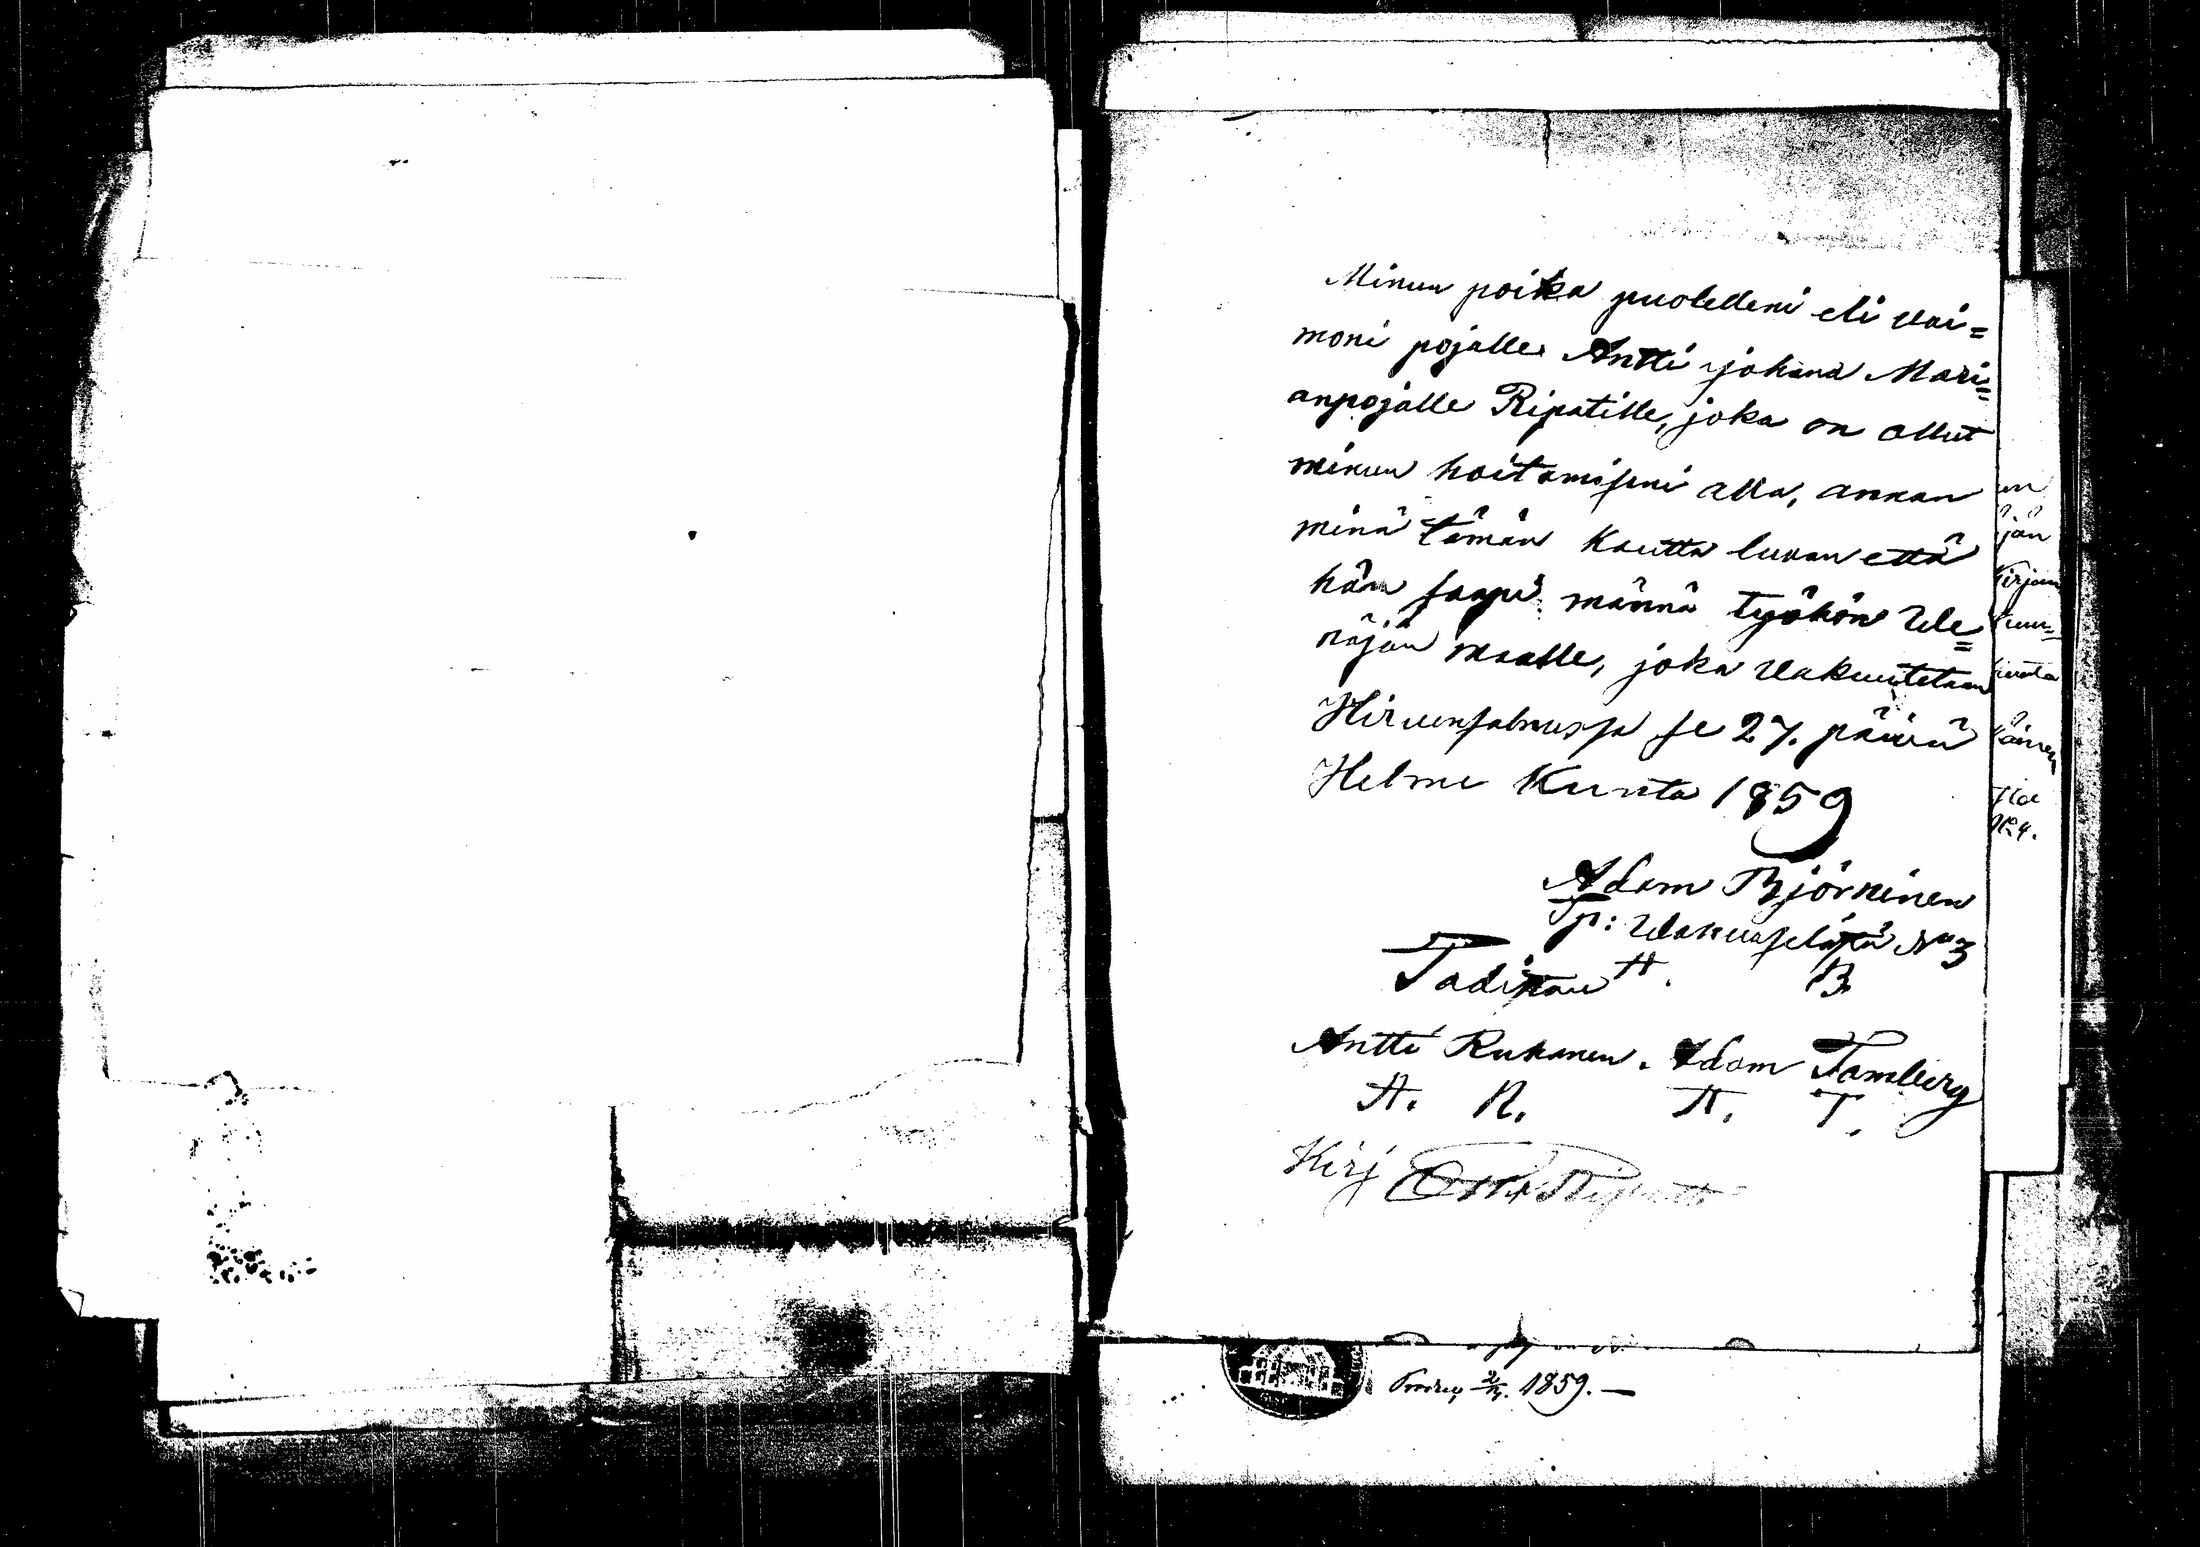 Minun poika puolelleni eli vai=
moni pojalle Antti Johana Mari=
anpojalle Ripatille, joka on ollut
minun hoitamiseni alla, annan
minä tämän kautta luvan että
hän saapi männä työhön We=
näjän maalle, joka vakuutetaan
Hirvensalmessa se 27. päivä
Helme Kuuta 1859
Adam Björninen
Sp: Wakuaselästä No 3
A. B.
Todistaa
Antti Kukonen. Adam Tamberg
A. K. A. T.
Kirj Ripatti
1859.
jän
Kirjan
No 4.